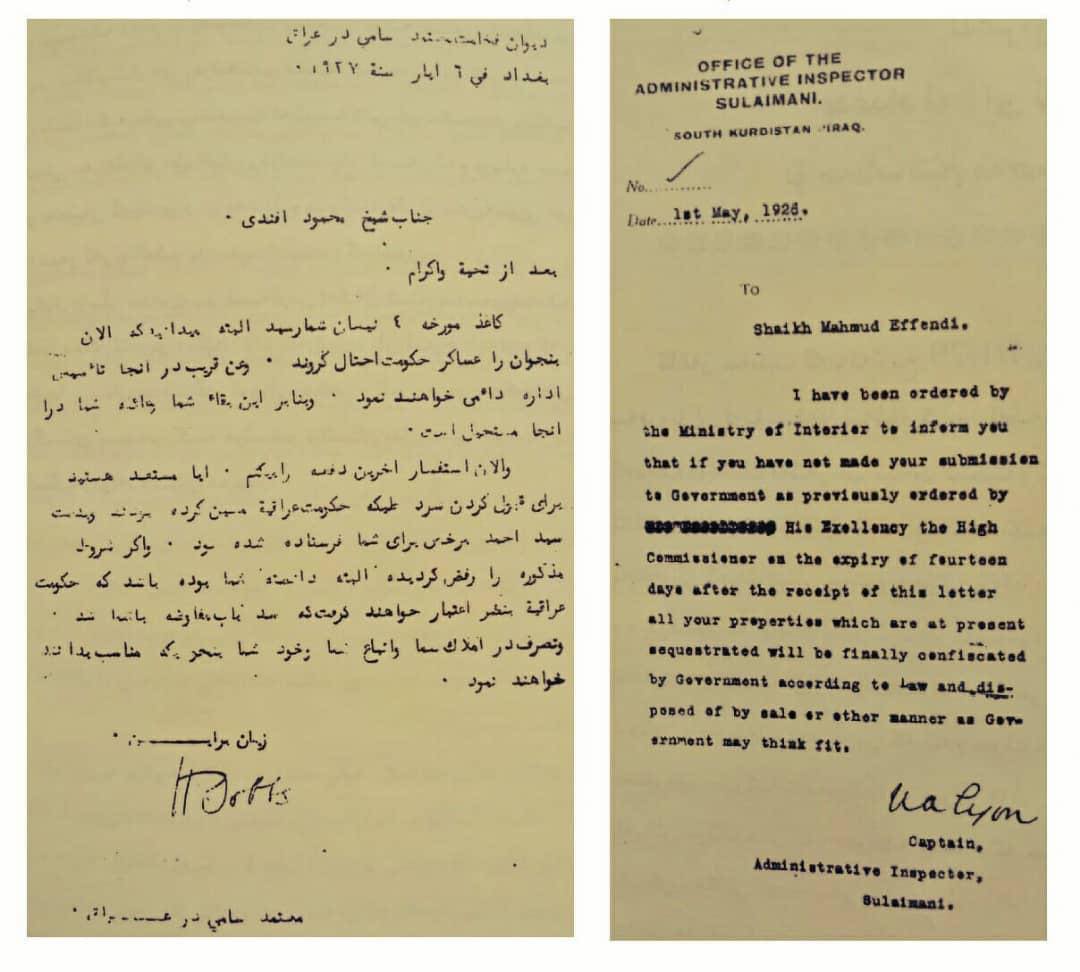 ديوان فخامت معتمد سامي در عراق
بغداد في ٦ ايار سنة ١٩٢٧ ٠
جناب شيخ محمود افندى ٠
بعد از تحية واكرام ٠
كاغذ مورخه ٤ نيسان شما رسيد البته ميدانيد كه الان
پنجوان را عساكر حكومت احتال كروند ٠ وعن قريب در انجا
اداره دائمى خواهند نمود ٠ وبنابر اين بقاء شما بفائده شما درا
انجا مستحيل است ٠
والان استفسار اخرين دفعه را ميكنم ٠ ايا مستعد هستيد
براى قبول كردن حكومت عراقية معين كرده بودند وبدست
سيد احمد براى شما فرستاده شده بود ٠ واكر شروط
مذكوره را رفض كرديده البته دانسته شما بوده باشد كه حكومت
عراقية بنظر اعتبار خواهند كرفت كه
وتصرف در املاك شما واتباع شما وخود شما مناسب بدانند
خواهند نمود ٠
H Dobbs
معتمد سامي در عــراق ٠
OFFICE OF THE
ADMINISTRATIVE INSPECTOR
SULAIMANI.
SOUTH KURDISTAN IRAQ.
No.............
Date....1st May, 1926.
To
Shaikh Mahmud Effendi.
I have been ordered by
the Ministry of Interier to inform you
that if you have not made your submission
to Government as previously ordered by
His Exellency the High
Commissioner on the expiry of fourteen
days after the receipt of this letter
all your properties which are at present
sequestrated will be finally confiscated
by Government according to Law and dis-
posed of by sale or other manner as Gov-
ernment may think fit.
Wa Lyon
Captain,
Administrative Inspector,
Sulaimani.